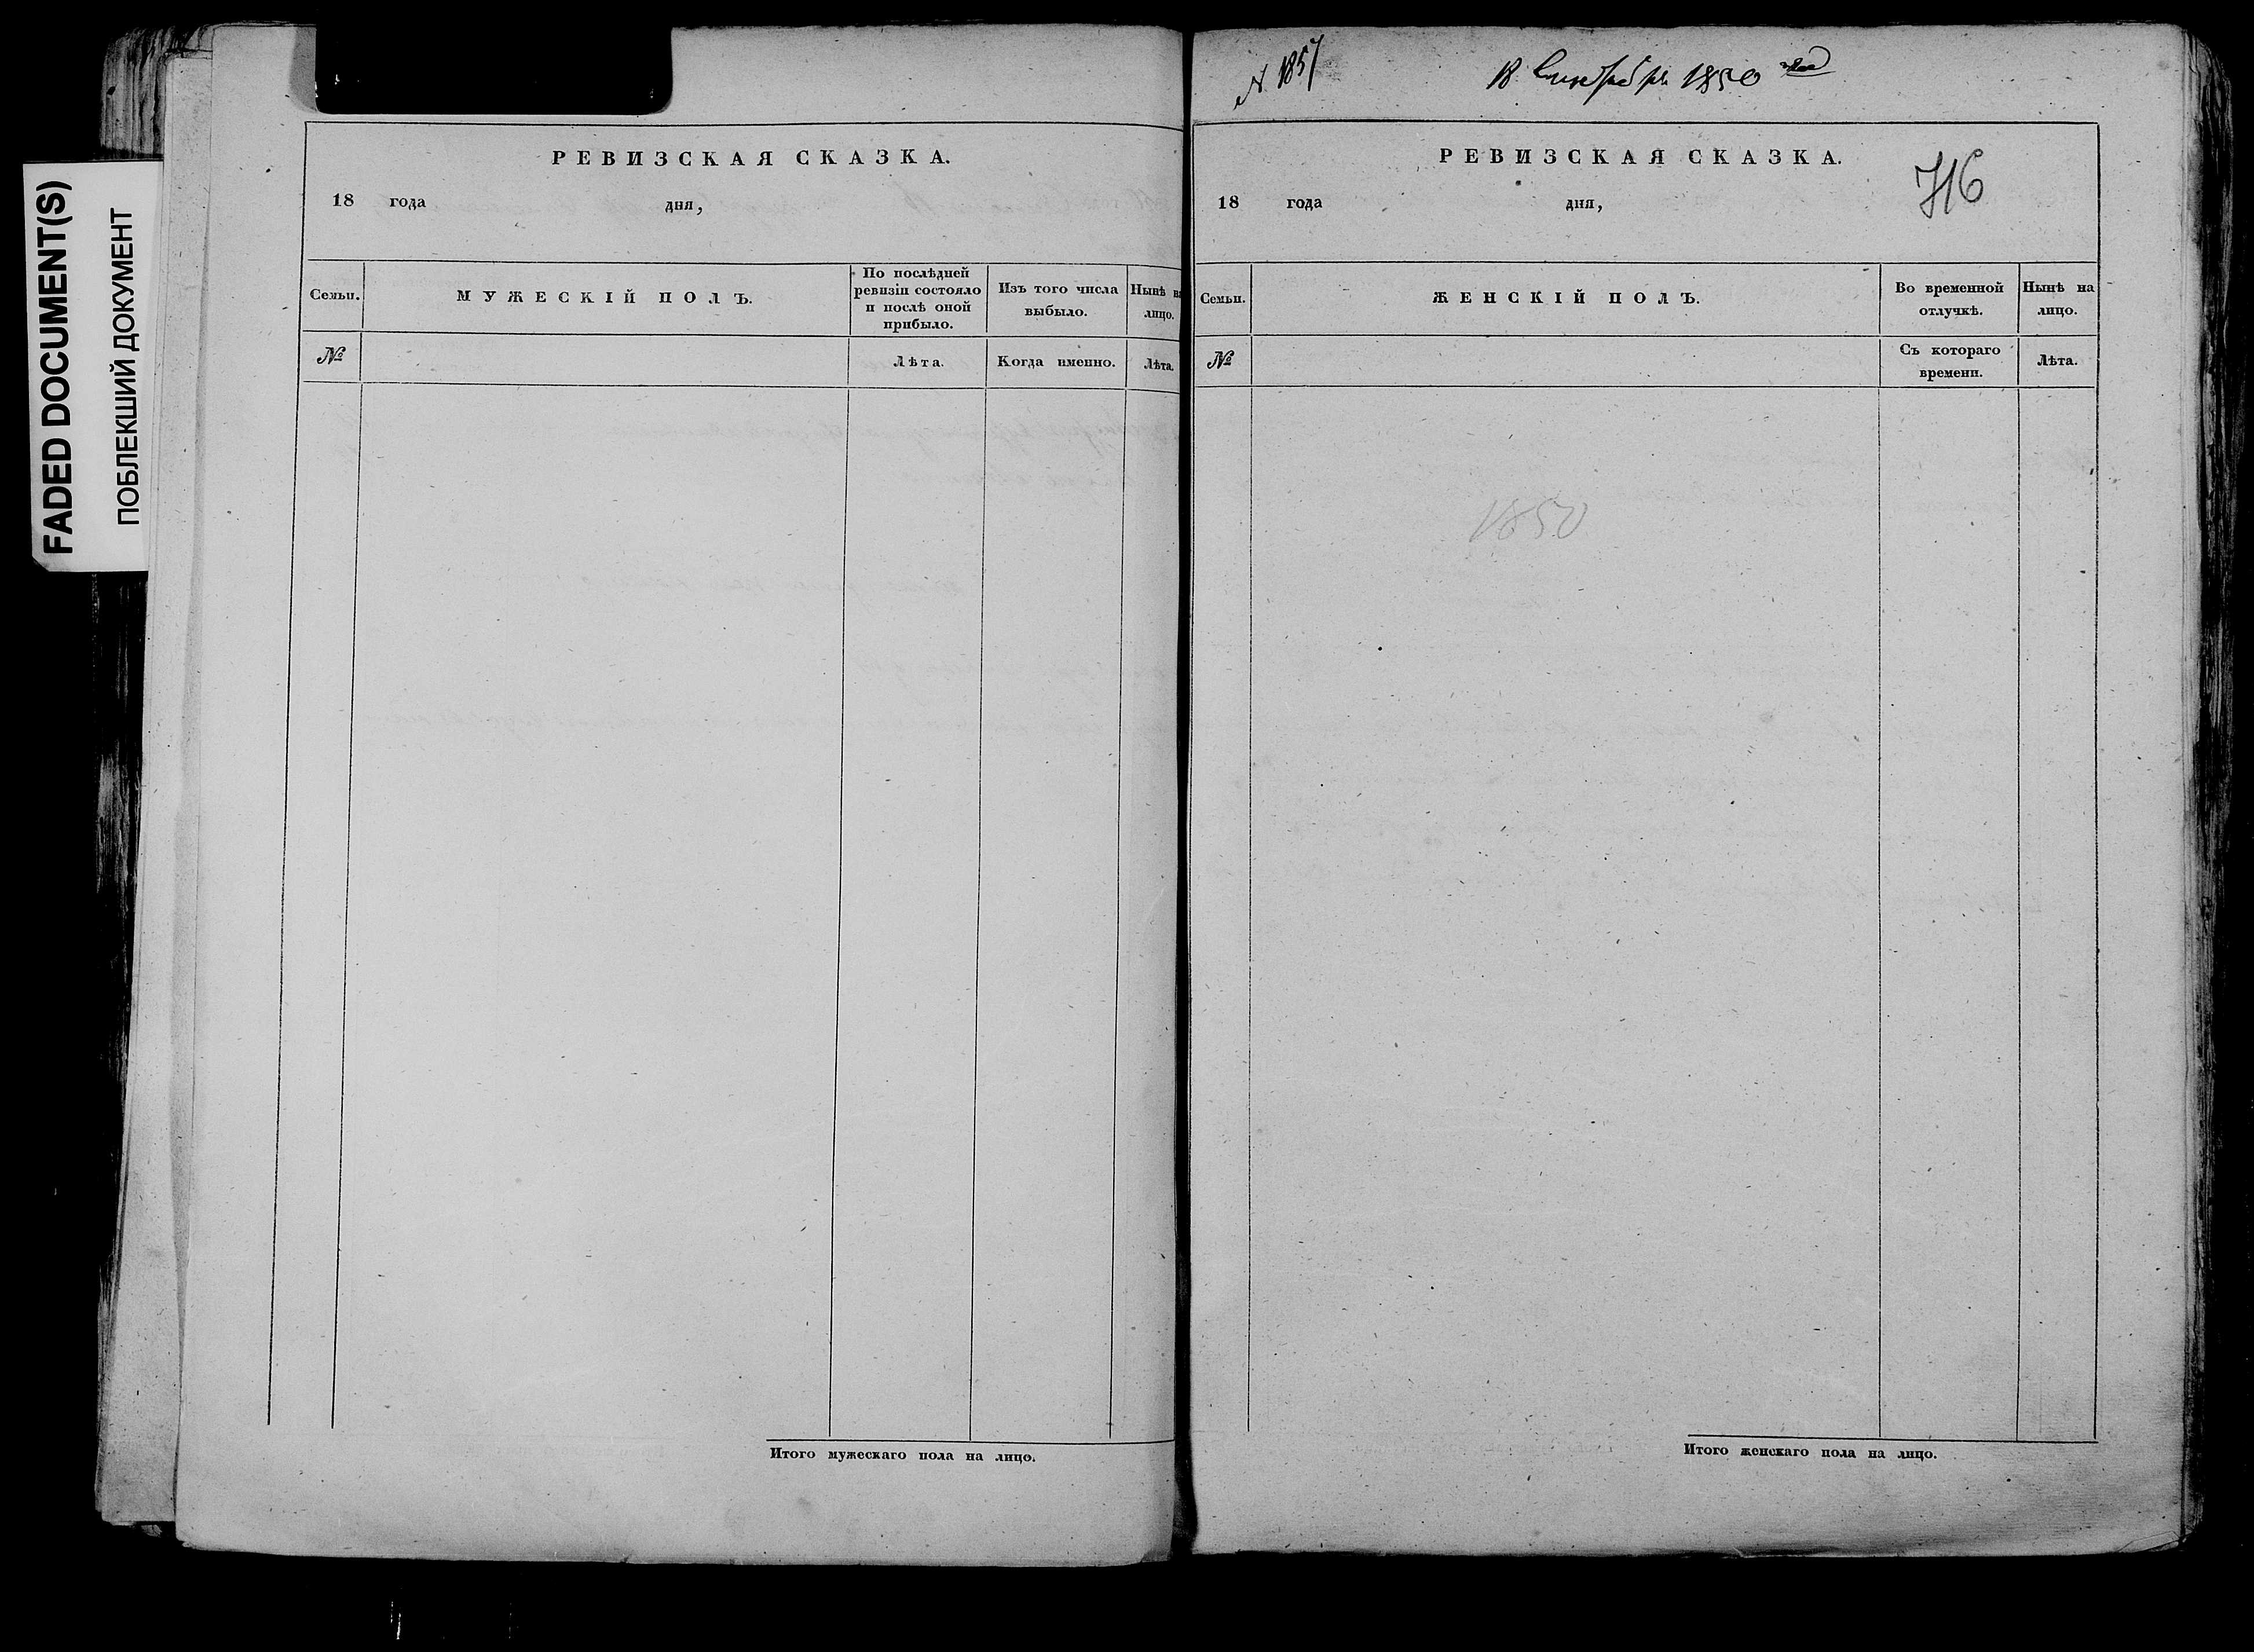 FADED DOCUMENT(S)
ПОБЛЕКШИЙ ДОКУМЕНТ
РЕВИЗСКАЯ СКАЗКА.
18 года дня,
Семьи.
МУЖЕСКІЙ ПОЛЪ.
По послѣдней
ревизіи состояло
и послѣ оной
прибыло.
Изъ того числа
выбыло.
Нынѣ на
лицо.
№
Лѣта.
Когда именно.
Лѣта.
Итого мужескаго пола на лицо.
№ 1857
18 1850
РЕВИЗСКАЯ СКАЗКА.
716
18 года дня,
Семьи.
ЖЕНСКІЙ ПОЛЪ.
Во временной
отлучкѣ.
Нынѣ на
лицо.
№
Съ котораго
времени.
Лѣта.
1850
Итого женскаго пола на лицо.